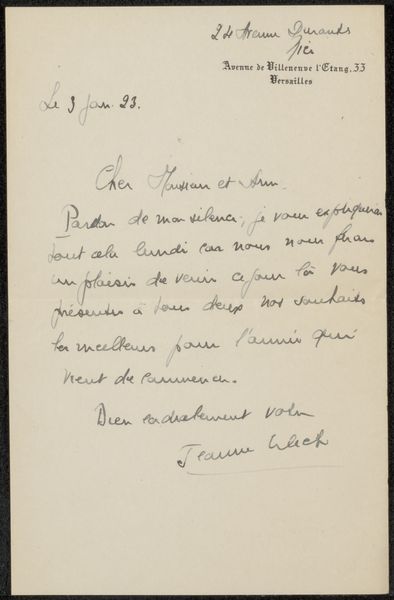 24 Avenue
Avenue de Villeneuve l'Etang, 33
Versailles
Le 3 Jan. 23.
Cher Monsieur et Ami.
Pardon de mon silence, je vous expliquerai
tout cela lundi car nous nous ferons
un plaisir de venir ce jour là vous
présenter à tous deux nos souhaits
les meilleurs pour l'année qui
vient de commencer.
Bien cordialement votre
Jeanne